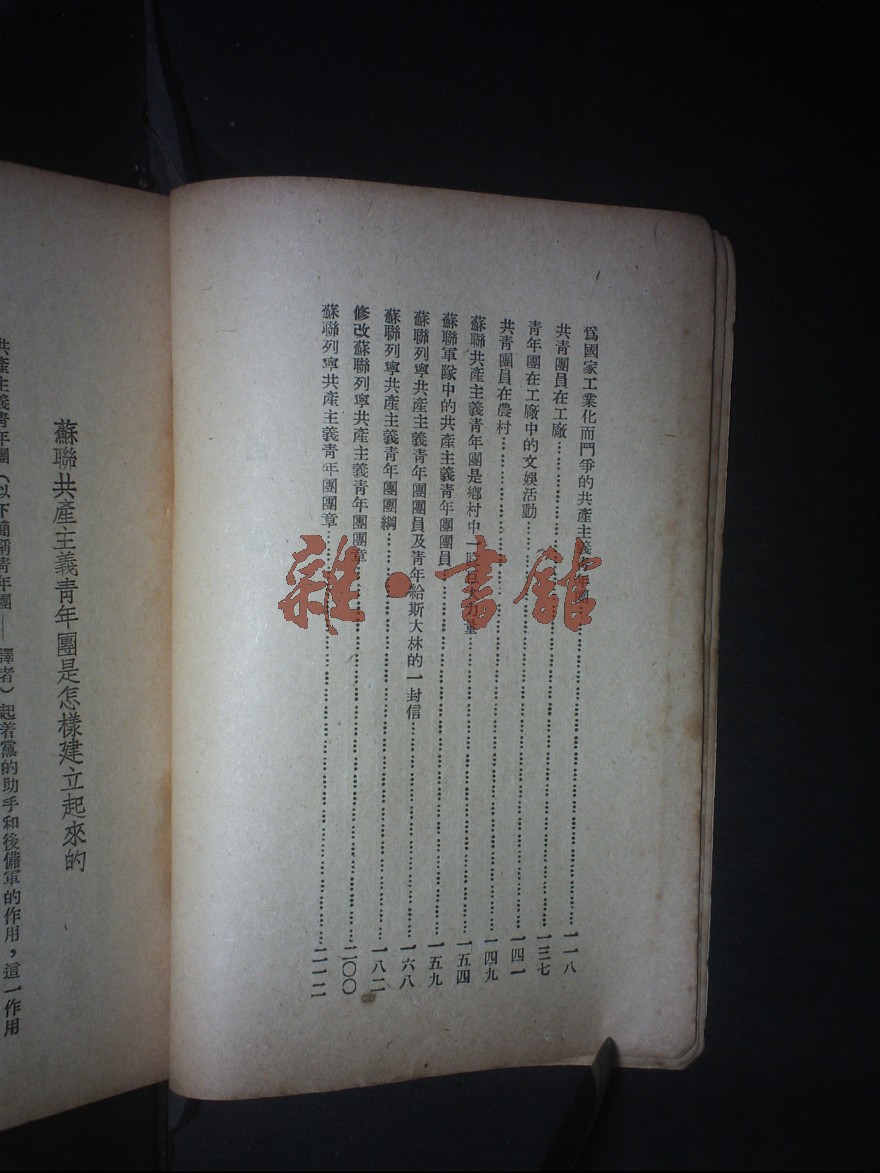 爲國家工業化而鬥爭的共產主義靑年團……一一八
共靑團員在工廠……一三七
靑年團在工廠中的文娛活動……一四一
共靑團員在農村……一四九
蘇聯共產主義靑年團是鄉村中一股巨大力量……一五四
蘇聯軍隊中的共產主義靑年團團員……一五九
蘇聯列寧共產主義靑年團團員及靑年給斯大林的一封信……一六八
蘇聯列寧共產主義靑年團團綱……一八二
修改蘇聯列寧共產主義靑年團團章……二〇〇
蘇聯列寧共產主義靑年團團章……二一二
蘇聯共產主義靑年團是怎樣建立起來的
共產主義靑年團（以下簡稱靑年團——譯者）起着黨的助手和後備軍的作用，這一作用
雜·書館